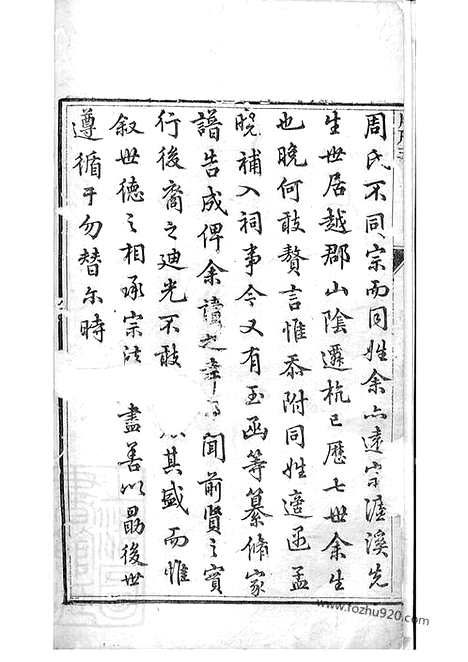 周氏不同宗而同姓余亦遠宗濂溪先
生世居越郡山陰遷杭已歷七世余生
也晚何敢贅言惟忝附同姓適逢孟
晚補入祠事今又有玉函等纂修家
譜告成俾余讀之幸聞前賢之實
行後裔之迪光不敢其盛而惟
叙世德之相承宗法盡善以勗後世
遵循于勿替尔時
www.fozhu920.com